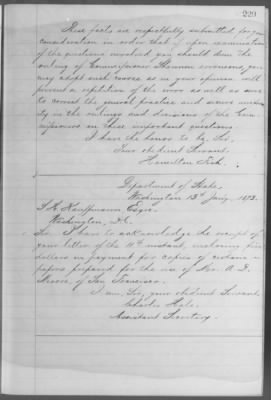 229
These facts are respectfully submitted for your
consideration in order that if upon examination
of the questions involved you should deem the
ruling of Commissioner Shannon erroneous you
may adopt such course as in your opinion will
prevent a repetition of the error as well as serve
to correct the general practice and secure uniform-
ity in the rulings and decisions of the Com-
missioners in these important questions.
I have the honor to be, Sir,
Your obedient Servant,
Hamilton Fish.
Department of State,
Washington 13th Jany. 1873.
S. H. Kauffmann Esqre.
Washington, D.C.
Sir, I have to acknowledge the receipt of
your letter of the 11th instant, enclosing five
dollars in payment for copies of certain
papers prepared for the use of Mr. A. D.
of San Francisco.
I am, Sir, your obedient Servant,
Charles Hale,
Assistant Secretary.